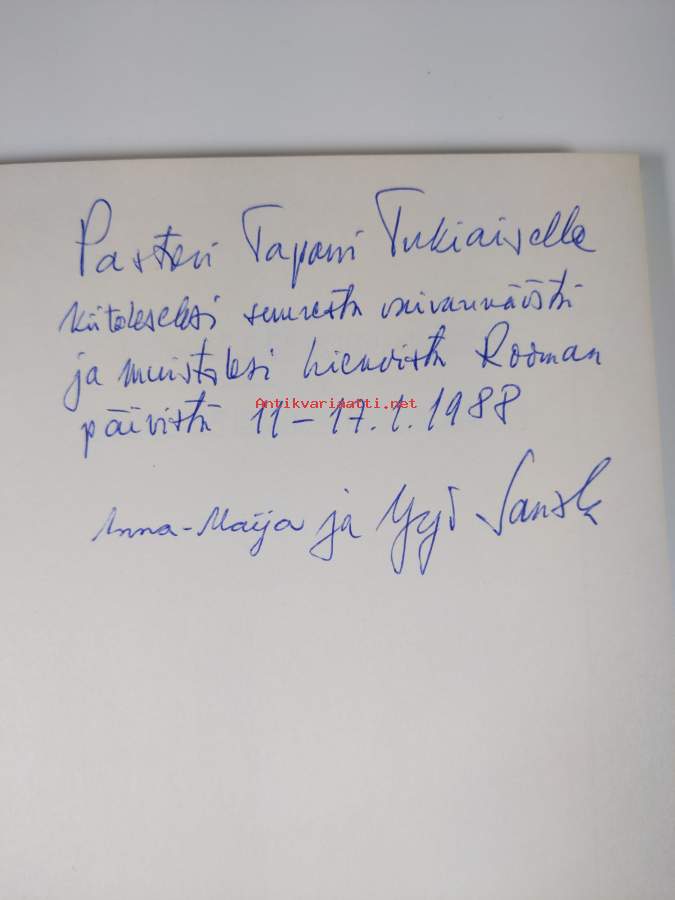 Pastori Tapani Tukiaiselle
kiitokseksi suuresta vaivannäöstä
ja muistoksi hienoista Rooman
Antikvariaatti.net
päivistä 11-17.1.1988
Anna-Maija ja Yrjö